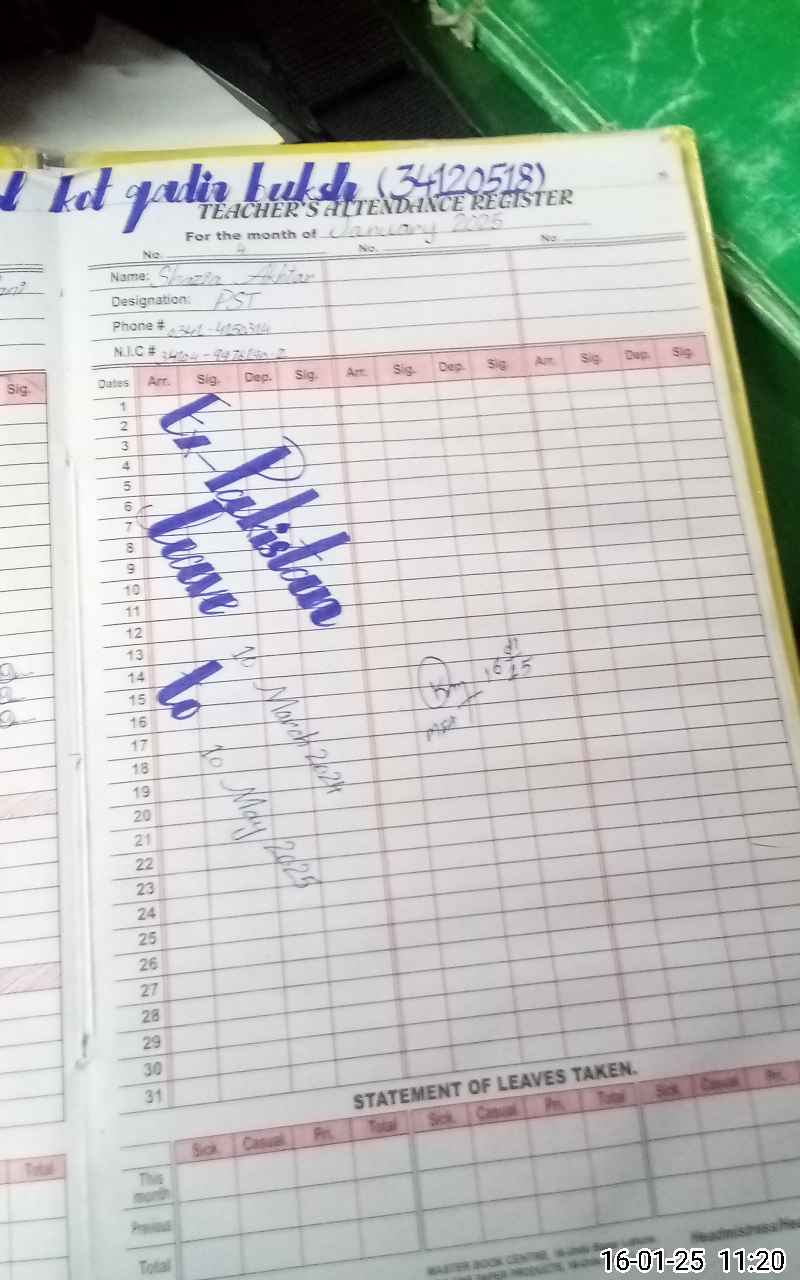 kot qadir buksh (34120518)
TEACHER'S ATTENDANCE REGISTER
For the month of January 2025
No. 4 No. No.
Name: Shazia Akhtar
Designation: PST
Phone # 0341-4150314
N.I.C #
Sig.
Dates Arr. Sig. Dep. Sig. Arr. Sig. Dep. Sig. Arr. Sig. Dep. Sig.
1
2
3
4
5
6
7
8
9
10
11
12
13
14
15
16
17
18
19
20
21
22
23
24
25
26
27
28
29
30
31
Ex-Pakistan
leave
10 March 2024
to
10 May 2025
STATEMENT OF LEAVES TAKEN.
Sick Casual Pri. Total Sick Casual Pri. Total Sick Casual Pri.
Total
This month
Previous
Total
MASTER BOOK CENTRE,
16-01-25 11:20